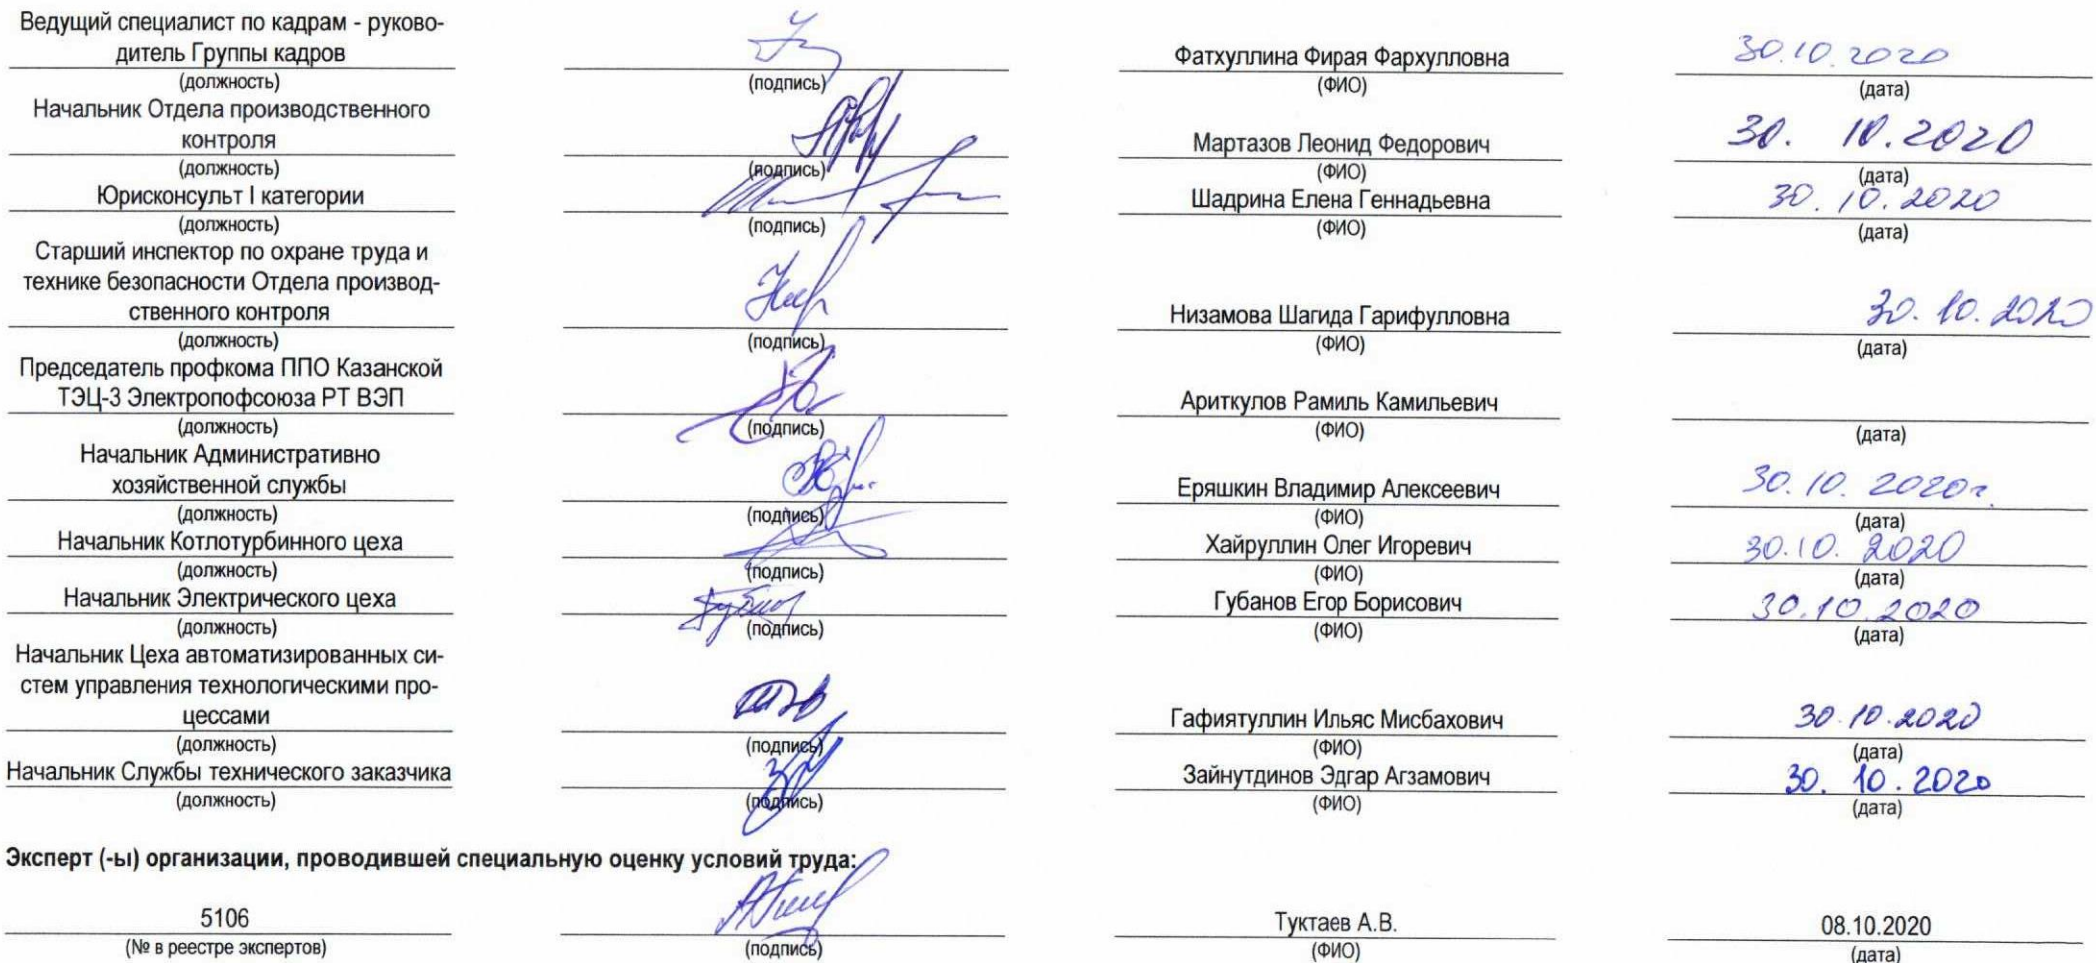 Ведущий специалист по кадрам - руково-
дитель Группы кадров Фатхуллина Фирая Фархулловна 30.10.2020
(должность) (подпись) (ФИО) (дата)
Начальник Отдела производственного
контроля Мартазов Леонид Федорович 30. 10.2020
(должность) (подпись) (ФИО) (дата)
Юрисконсульт I категории Шадрина Елена Геннадьевна 30.10.2020
(должность) (подпись) (ФИО) (дата)
Старший инспектор по охране труда и
технике безопасности Отдела производ-
ственного контроля Низамова Шагида Гарифулловна 30.10.2020
(должность) (подпись) (ФИО) (дата)
Председатель профкома ППО Казанской
ТЭЦ-3 Электропофсоюза РТ ВЭП Ариткулов Рамиль Камильевич
(должность) (подпись) (ФИО) (дата)
Начальник Административно
хозяйственной службы Еряшкин Владимир Алексеевич 30.10.2020г.
(должность) (подпись) (ФИО) (дата)
Начальник Котлотурбинного цеха Хайруллин Олег Игоревич 30.10.2020
(должность) (подпись) (ФИО) (дата)
Начальник Электрического цеха Губанов Егор Борисович 30.10.2020
(должность) (подпись) (ФИО) (дата)
Начальник Цеха автоматизированных си-
стем управления технологическими про-
цессами Гафиятуллин Ильяс Мисбахович 30.10.2020
(должность) (подпись) (ФИО) (дата)
Начальник Службы технического заказчика Зайнутдинов Эдгар Агзамович 30.10.2020
(должность) (подпись) (ФИО) (дата)
Эксперт (-ы) организации, проводившей специальную оценку условий труда:
5106 Туктаев А.В. 08.10.2020
(№ в реестре экспертов) (подпись) (ФИО) (дата)